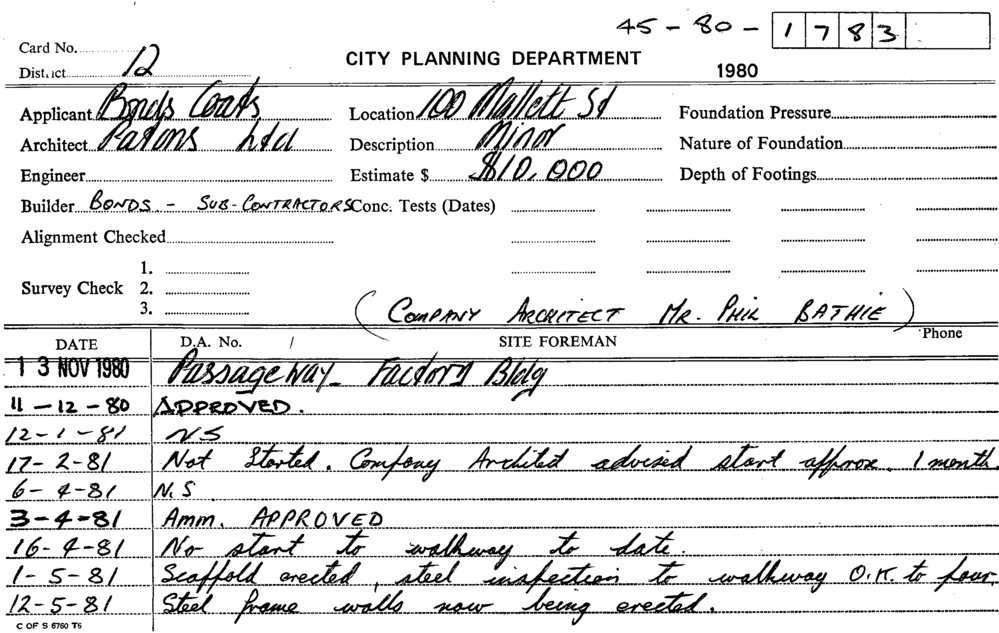 45-80-1783
Card No.
CITY PLANNING DEPARTMENT
District 12
1980
Applicant Bonds Coats Location 100 Mallett St Foundation Pressure
Architect Patons Ltd Description Minor Nature of Foundation
Engineer Estimate $ $10,000 Depth of Footings
Builder BONDS - SUB-CONTRACTORS Conc. Tests (Dates)
Alignment Checked
1.
Survey Check 2.
3.
(COMPANY ARCHITECT MR. PHIL BATHIE)
DATE D.A. No. / SITE FOREMAN Phone
13 NOV 1980 Passageway - Factory Bldg
11-12-80 APPROVED.
12-1-81 NS
17-2-81 Not Started. Company Architect advised start approx. 1 month.
6-4-81 N.S.
3-4-81 Amm. APPROVED
16-4-81 No start to walkway to date.
1-5-81 Scaffold erected, steel inspection to walkway O.K. to pour.
12-5-81 Steel frame walls now being erected.
C OF S 6760 T6